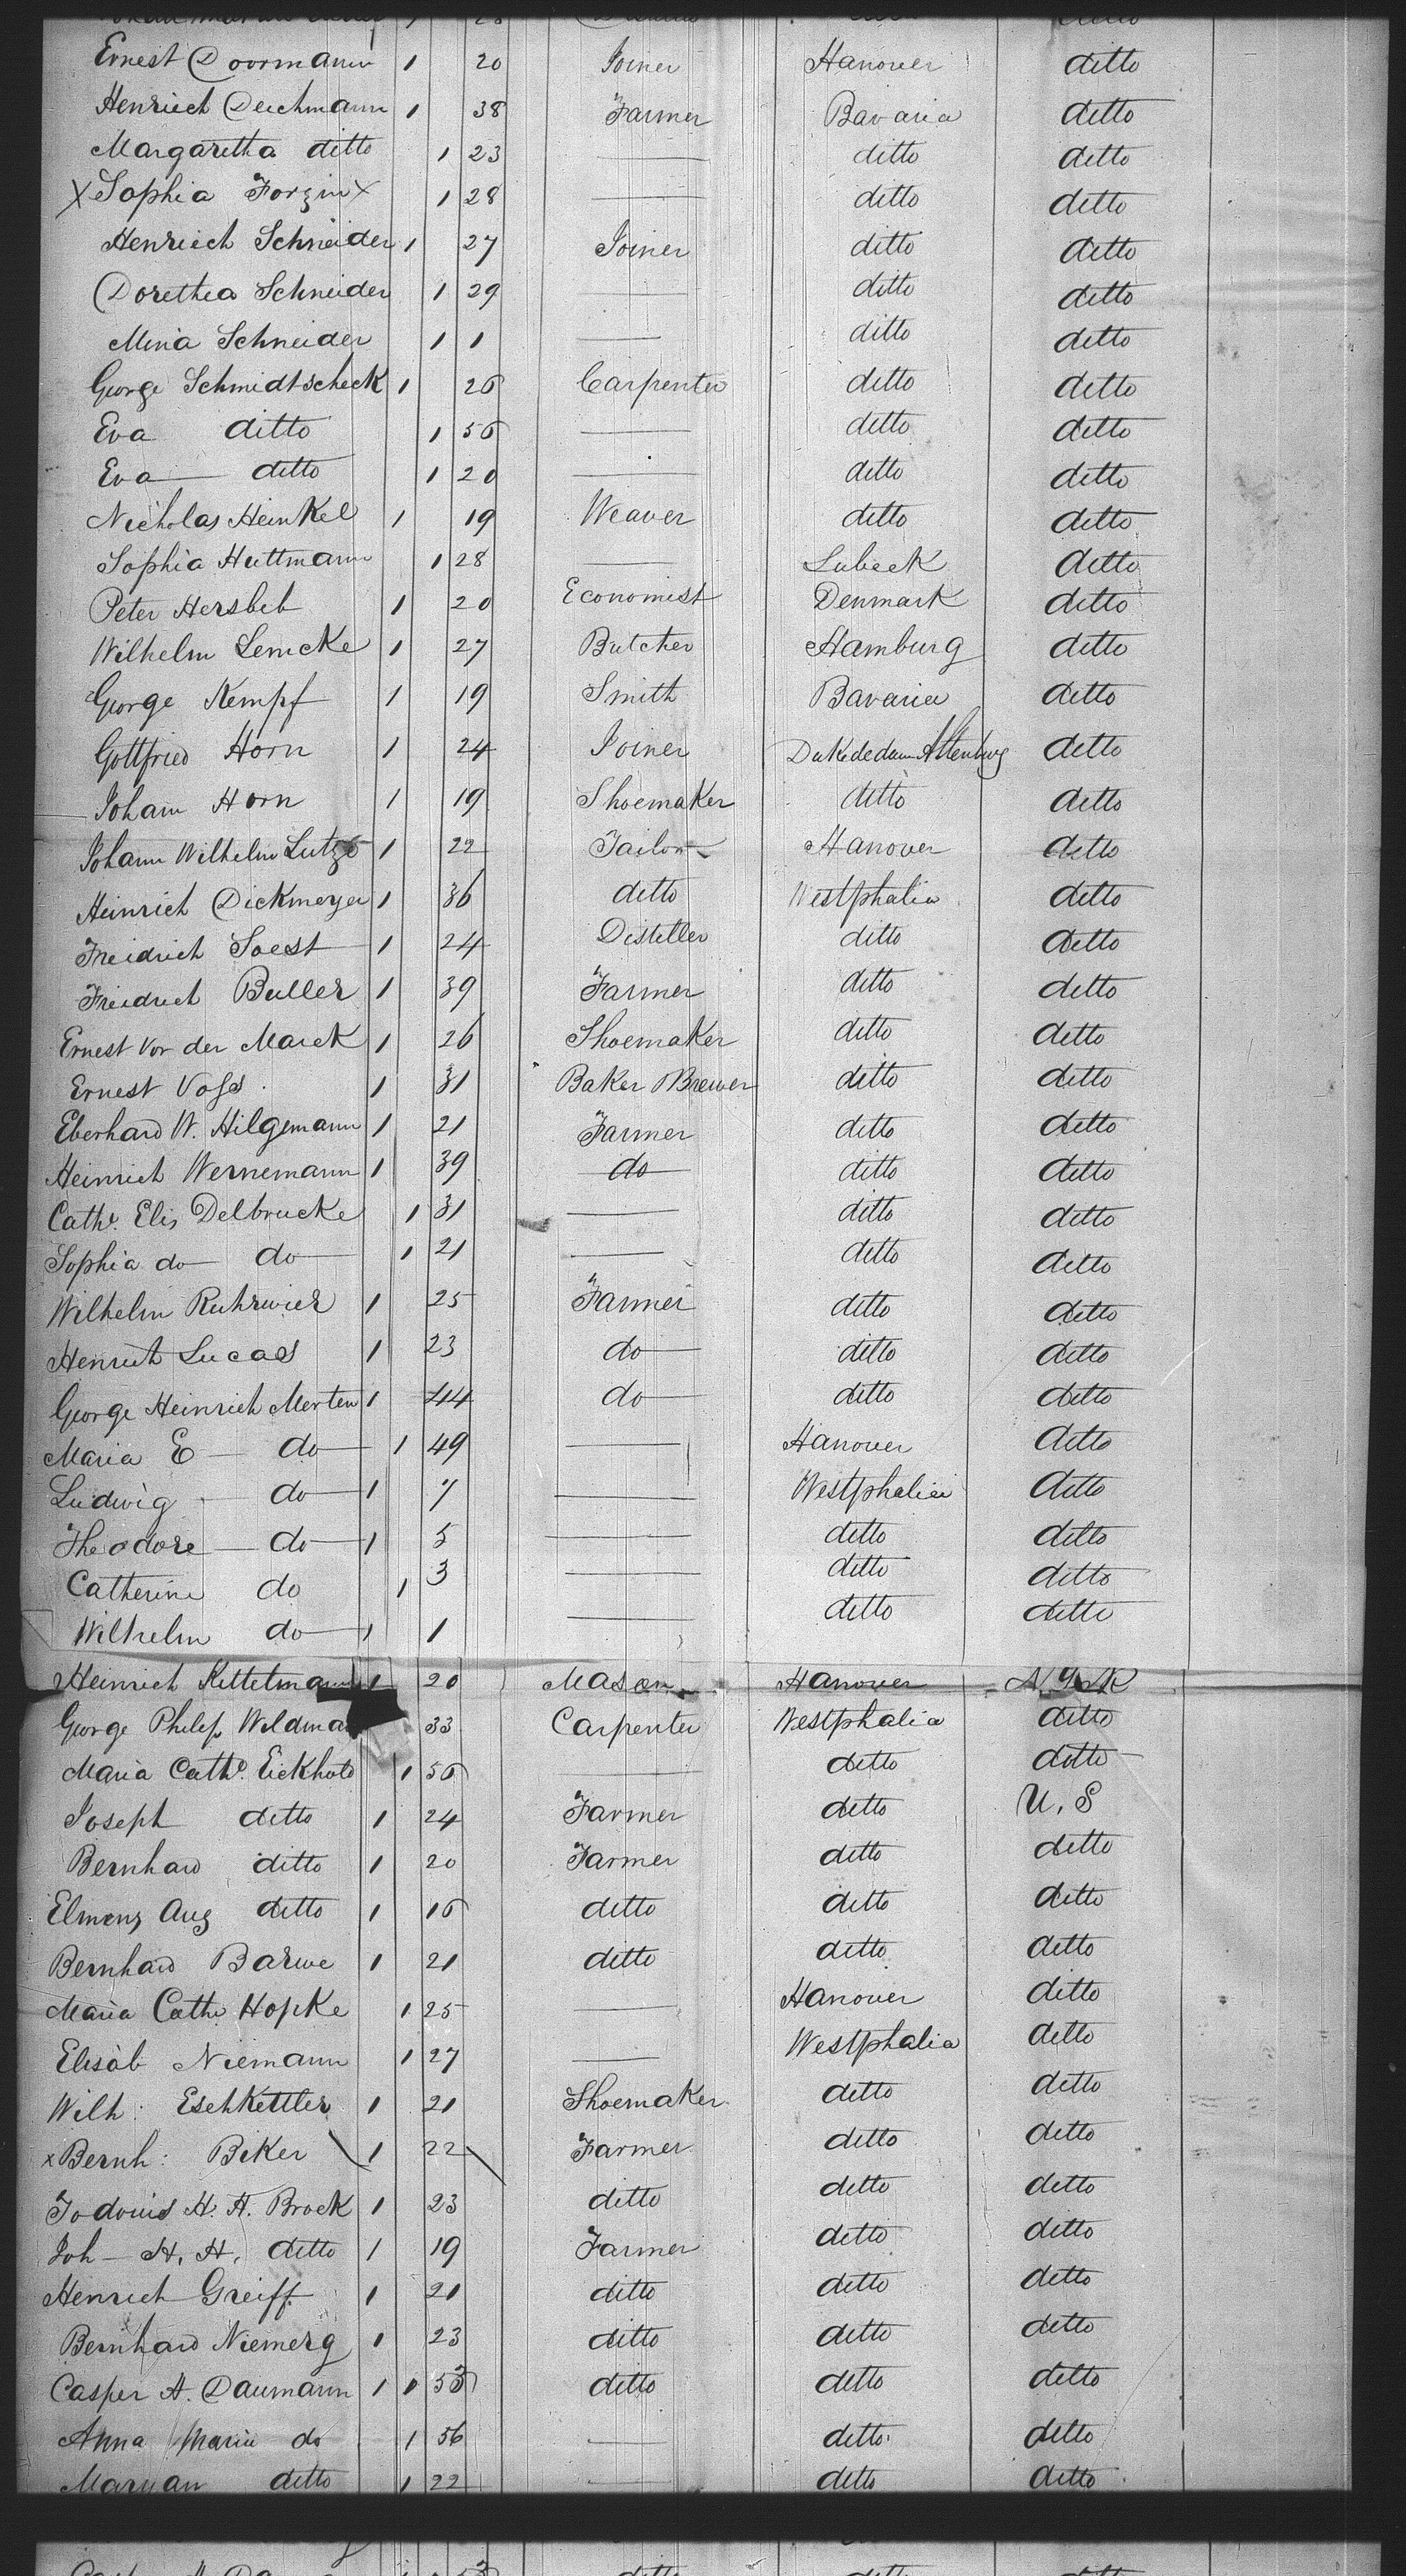 Ernest Doormann 1 20 Joiner Hanover ditto
Henriech Deichmann 1 38 Farmer Bavaria ditto
Margaretha ditto 1 23 — ditto ditto
X Sophia Forzin X 1 28 — ditto ditto
Henriech Schneider 1 27 Joiner ditto ditto
Dorethea Schneider 1 29 — ditto ditto
Mina Schneider 1 1 — ditto ditto
George Schmidtscheck 1 26 Carpenter ditto ditto
Eva ditto 1 56 — ditto ditto
Eva — ditto 1 20 — ditto ditto
Nicholas Heinkel 1 19 Weaver ditto ditto
Sophia Huttmann 1 28 — Lubeck ditto
Peter Hersbeb 1 20 Economist Denmark ditto
Wilhelm Lemcke 1 27 Butcher Hamburg ditto
George Kempf 1 19 Smith Bavaria ditto
Gottfried Horn 1 24 Joiner Dukededum Altenburg ditto
Johann Horn 1 19 Shoemaker ditto ditto
Johann Wilhelm 1 22 Tailor Hanover ditto
Heinrich Dickmeyer 1 36 ditto Westphalia ditto
Freidrich Soest 1 24 Distiller ditto ditto
Freidrich Buller 1 39 Farmer ditto ditto
Ernest Von der Marck 1 26 Shoemaker ditto ditto
Ernest Voss 1 31 Baker Brewer ditto ditto
Eberhard W. Hilgemann 1 21 Farmer ditto ditto
Heinrich Wernemann 1 39 do ditto ditto
Cathe. Elis Delbrucke 1 31 — ditto ditto
Sophia do — do 1 21 — ditto ditto
Wilhelm Ruhrwier 1 25 Farmer ditto ditto
Henrich Lucas 1 23 do ditto ditto
George Heinrich Merten 1 44 do ditto ditto
Maria E — do 1 49 — Hanover ditto
Ludwig — do 1 7 — Westphalia ditto
Theodore — do 1 5 — ditto ditto
Catherine do 1 3 — ditto ditto
Wilhelm do 1 1 — ditto ditto
Heinrich Kettelmann 1 20 Mason Hanover N York
George Philip 33 Carpenter Westphalia ditto
Maria Cathe. Eickholt 1 56 — ditto ditto
Joseph ditto 1 24 Farmer ditto U. S
Bernhard ditto 1 20 Farmer ditto ditto
Elmenz Aug ditto 1 16 ditto ditto ditto
Bernhard Barwe 1 21 ditto ditto ditto
Maria Cathe Hopke 1 25 — Hanover ditto
Elisab Niemann 1 27 — Westphalia ditto
Wilh: Eschkettler 1 21 Shoemaker ditto ditto
x Bernh: Beker \ 1 22 \ Farmer ditto ditto
Jodouis H. H. Brock 1 23 ditto ditto ditto
Joh — H. H. ditto 1 19 Farmer ditto ditto
Henrich Greiff 1 21 ditto ditto ditto
Bernhard Niemerg 1 23 ditto ditto ditto
Casper H. Daumann 1 1 53 ditto ditto ditto
Anna Maria do 1 56 — ditto ditto
Maryan ditto 1 22 — ditto ditto